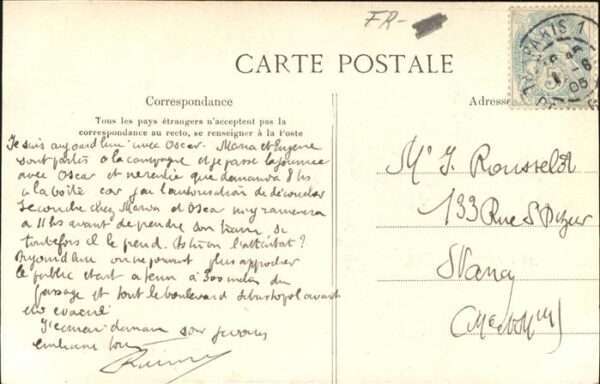 FR-
CARTE POSTALE
Correspondance
Tous les pays étrangers n'acceptent pas la
correspondance au recto, se renseigner à la Poste
Adresse
PARIS 1
05
Je suis aujourd'hui avec Oscar. Maria et Eugène
sont partis à la campagne et je passe la journée
avec Oscar et ne rentre que demain à 8 hs
à la boîte car j'ai l'autorisation de découcher
Je couche chez Maria et Oscar m'y ramènera
à 11 hs avant de prendre son train si
toutefois il le prend. As tu lu l'attentat?
Aujourd'hui on ne pouvait plus approcher
le public était à 300 mètres du
passage et tout le boulevard Sébastopol avait
été évacué
J'écrirai demain soir
embrasse
Mr J. Rousselot
133 Rue St Dizier
Nancy
(Mthe et Mlle)